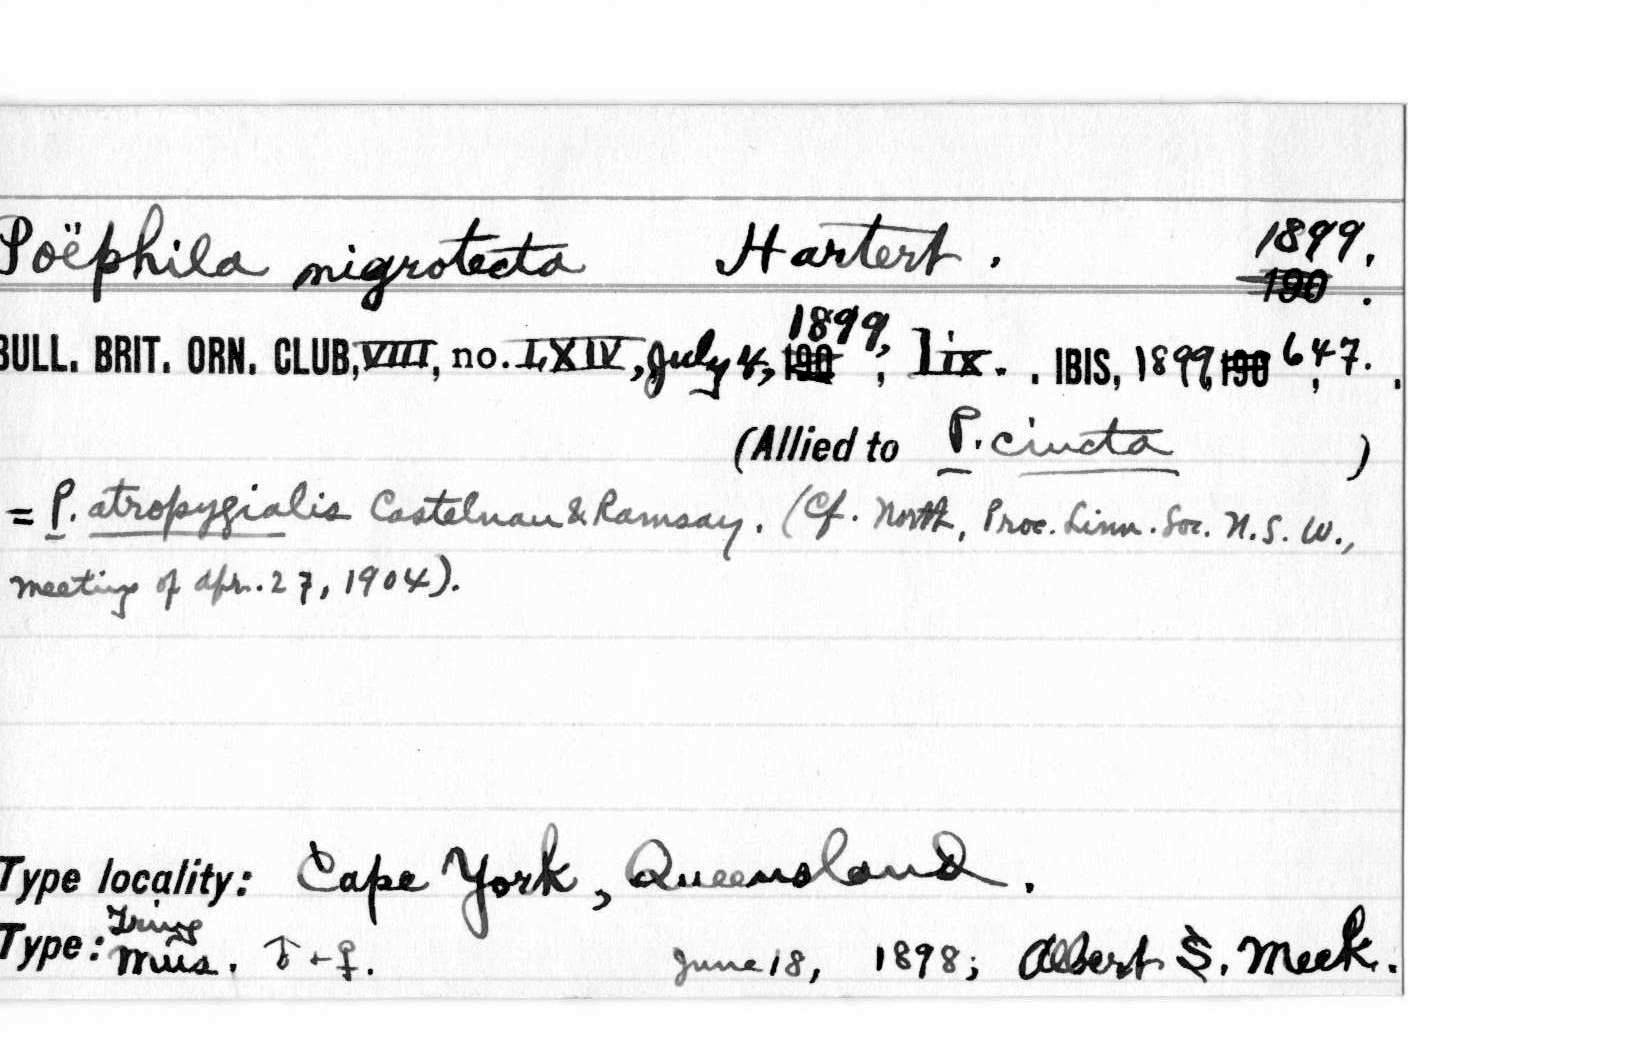 Poëphila nigrotecta Hartert. 1899.
190 .
1899,
BULL. BRIT. ORN. CLUB, VIII, no. LXIV, July 4, 190 , lix. . IBIS, 1899, 190 , 647. .
(Allied to P. cincta )
= P. atropygialis Castelnau & Ramsay. (Cf. North, Proc. Linn. Soc. N.S.W.,
meeting of Apr. 27, 1904).
Type locality: Cape York, Queensland.
Tring
Type: Mus. ♂ - ♀. June 18, 1898; Albert S. Meek.